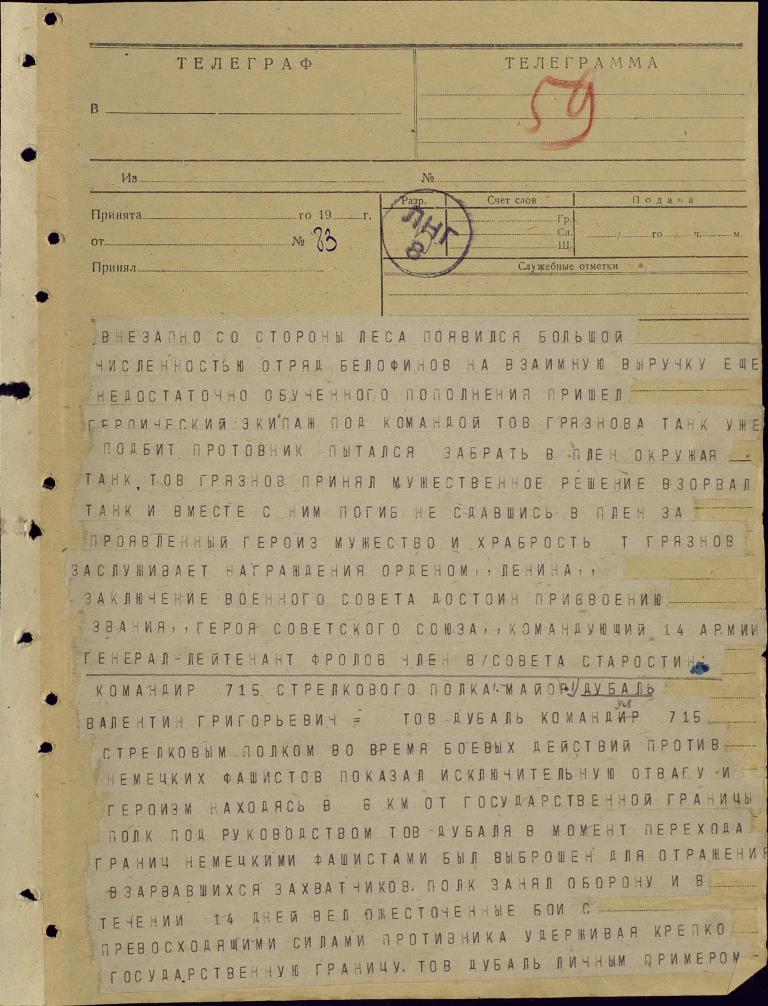 ТЕЛЕГРАФ
ТЕЛЕГРАММА
59
В
Из
№
Принята го 19 г.
от № 83
Принял
Разр.
Счет слов
Гр.
Сл.
Ш.
Подана
/ го ч. м.
Служебные отметки
ВНЕЗАПНО СО СТОРОНЫ ЛЕСА ПОЯВИЛСЯ БОЛЬШОЙ
ЧИСЛЕННОСТЬЮ ОТРЯД БЕЛОФИНОВ НА ВЗАИМНУЮ ВЫРУЧКУ ЕЩЕ
НЕДОСТАТОЧНО ОБУЧЕННОГО ПОПОЛНЕНИЯ ПРИШЕЛ
ГЕРОИЧЕСКИЙ ЭКИПАЖ ПОД КОМАНДОЙ ТОВ ГРЯЗНОВА ТАНК УЖЕ
ПОДБИТ ПРОТОВНИК ПЫТАЛСЯ ЗАБРАТЬ В ПЛЕН ОКРУЖАЯ
ТАНК, ТОВ ГРЯЗНОВ ПРИНЯЛ МУЖЕСТВЕННОЕ РЕШЕНИЕ ВЗОРВАЛ
ТАНК И ВМЕСТЕ С НИМ ПОГИБ, НЕ СДАВШИСЬ В ПЛЕН ЗА
ПРОЯВЛЕННЫЙ ГЕРОИЗ МУЖЕСТВО И ХРАБРОСТЬ Т ГРЯЗНОВ
ЗАСЛУЖИВАЕТ НАГРАЖДЕНИЯ ОРДЕНОМ,,ЛЕНИНА,,
ЗАКЛЮЧЕНИЕ ВОЕННОГО СОВЕТА ДОСТОИН ПРИСВОЕНИЮ
ЗВАНИЯ,,ГЕРОЯ СОВЕТСКОГО СОЮЗА,,КОМАНДУЮЩИЙ 14 АРМИИ
ГЕНЕРАЛ-ЛЕЙТЕНАНТ ФРОЛОВ ЧЛЕН В/СОВЕТА СТАРОСТИН
КОМАНДИР 715 СТРЕЛКОВОГО ПОЛКА МАЙОР ДУБАЛЬ
ВАЛЕНТИН ГРИГОРЬЕВИЧ = ТОВ ДУБАЛЬ КОМАНДИР 715
СТРЕЛКОВЫМ ПОЛКОМ ВО ВРЕМЯ БОЕВЫХ ДЕЙСТВИЙ ПРОТИВ
НЕМЕЦКИХ ФАШИСТОВ ПОКАЗАЛ ИСКЛЮЧИТЕЛЬНУЮ ОТВАГУ И
ГЕРОИЗМ НАХОДЯСЬ В 6 КМ ОТ ГОСУДАРСТВЕННОЙ ГРАНИЦЫ
ПОЛК ПОД РУКОВОДСТВОМ ТОВ ДУБАЛЯ В МОМЕНТ ПЕРЕХОДА
ГРАНИЦ НЕМЕЦКИМИ ФАШИСТАМИ БЫЛ ВЫБРОШЕН ДЛЯ ОТРАЖЕНИЯ
ВЗАРВАВШИХСЯ ЗАХВАТЧИКОВ. ПОЛК ЗАНЯЛ ОБОРОНУ И В
ТЕЧЕНИИ 14 ДНЕЙ ВЕЛ ОЖЕСТОЧЕННЫЕ БОИ С
ПРЕВОСХОДЯЩИМИ СИЛАМИ ПРОТИВНИКА УДЕРЖИВАЯ КРЕПКО
ГОСУДАРСТВЕННУЮ ГРАНИЦУ. ТОВ ДУБАЛЬ ЛИЧНЫМ ПРИМЕРОМ